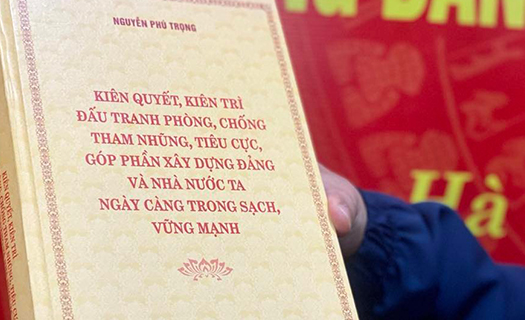 NGUYỄN PHÚ TRỌNG
KIÊN QUYẾT, KIÊN TRÌ
ĐẤU TRANH PHÒNG, CHỐNG
THAM NHŨNG, TIÊU CỰC,
GÓP PHẦN XÂY DỰNG ĐẢNG
VÀ NHÀ NƯỚC TA
NGÀY CÀNG TRONG SẠCH,
VỮNG MẠNH
KIÊN QUYẾT, KIÊN TRÌ
Hà